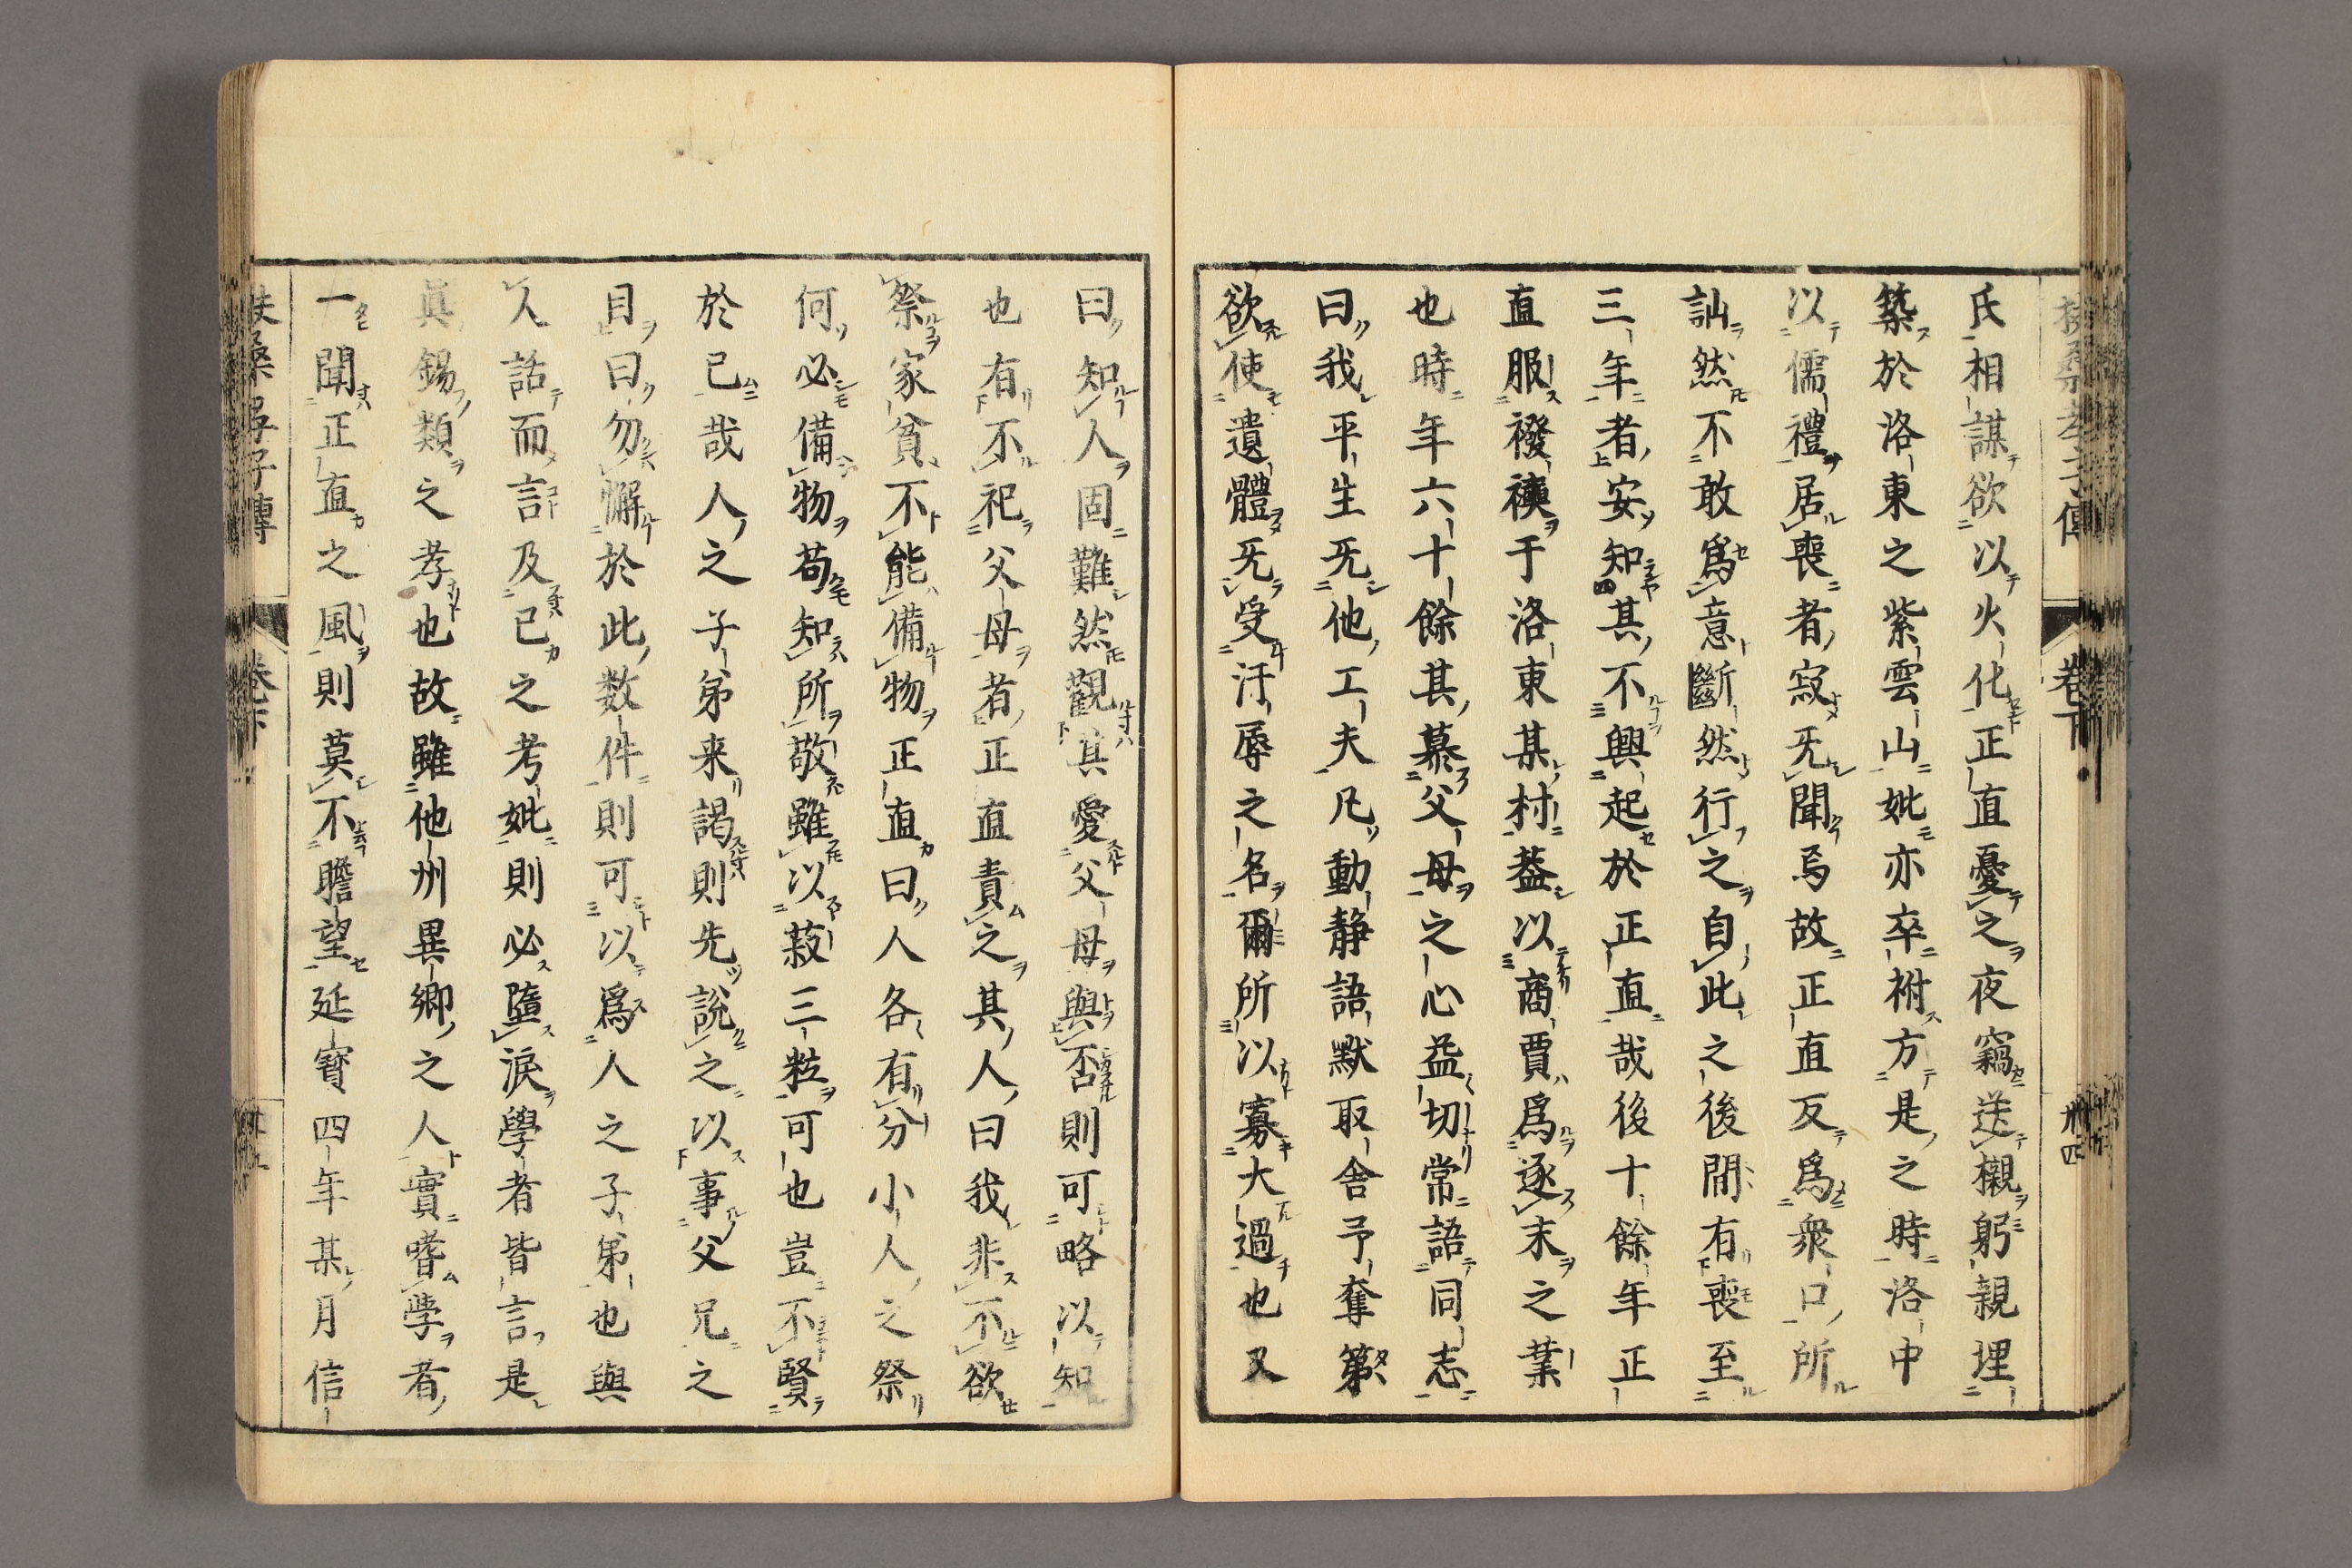 氏相謀欲以火化正直憂之夜竊送櫬躬親埋
築於洛東之紫雲山妣亦卒祔方是之時洛中
以儒禮居喪者寂无聞焉故正直反爲衆口所
訕然不敢爲意斷然行之自此之後間有喪至
三年者安知其不興起於正直哉後十餘年正
直服襏襫于洛東某村蓋以商賈爲逐末之業
也時年六十餘其慕父母之心益切常語同志
曰我平生无他工夫凡動静語默取舎予奪第
欲使遺體无受汙辱之名爾所以寡大過也又
曰知人固難然觀其愛父母與否則可略以知
也有不祀父母者正直責之其人曰我非不欲
祭家貧不能備物正直曰人各有分小人之祭
何必備物苟知所敬雖以菽三粒可也豈不賢
於已哉人之子弟来謁則先説之以事父兄之
目曰勿懈於此数件則可以爲人之子弟也與
人話而言及已之考妣則必墮淚學者皆言是
眞錫類之孝也故雖他州異郷之人實嗜学者
一聞正直之風則莫不瞻望延寳四年某月信
扶桑孝子傳
卷下
卅四